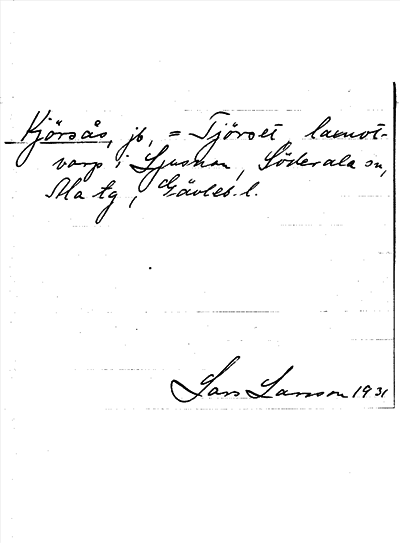 Kjörsås, jb, = Tjörset laxnot-
varp i Ljusnan, Söderala sn,
Ala tg, Gävleb. l.
Lars Larsson 1931